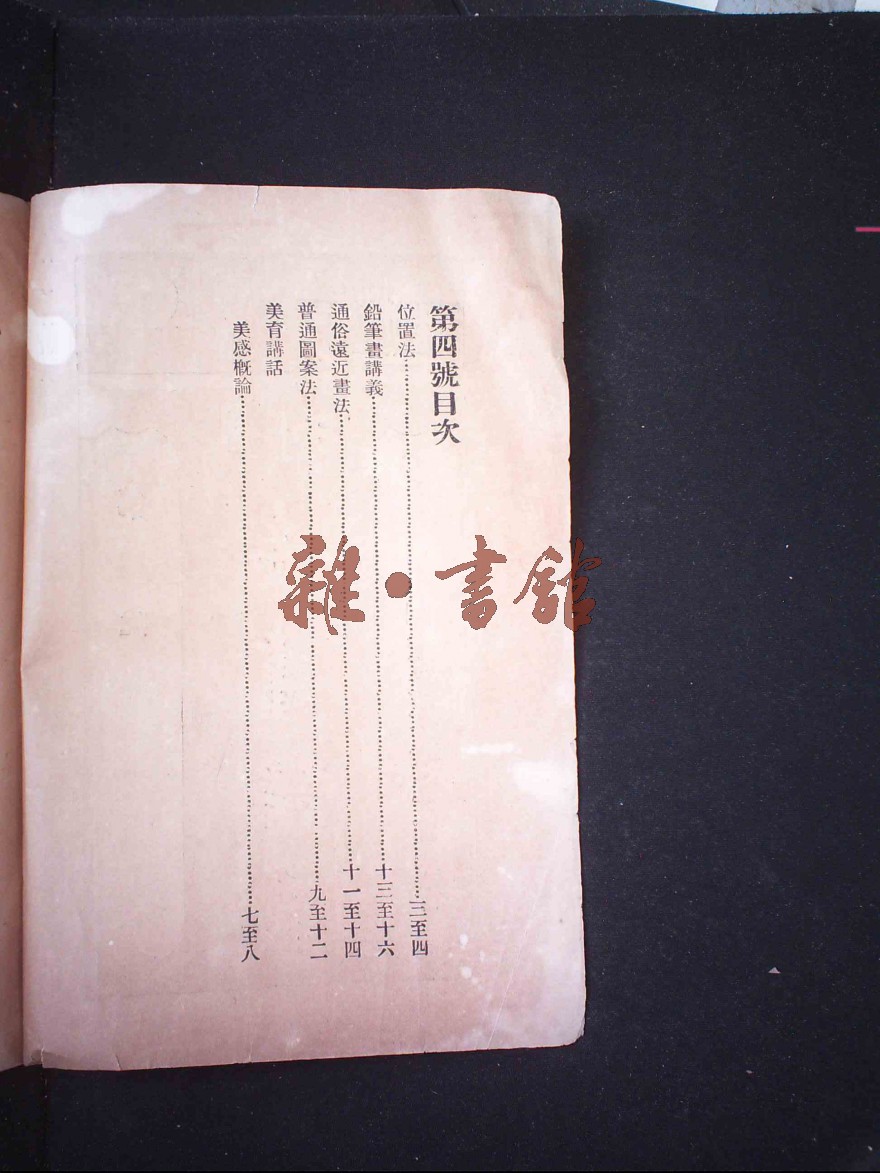 第四號目次
位置法……三至四
鉛筆畫講義……十三至十六
通俗遠近畫法……十一至十四
普通圖案法……九至十二
美育講話
美感概論……七至八
雜·書館